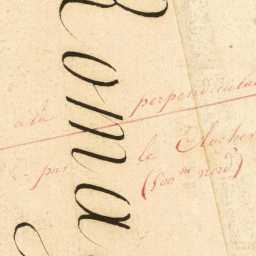 Roma
à la perpendiculai
par le Clocher
(500m nord)